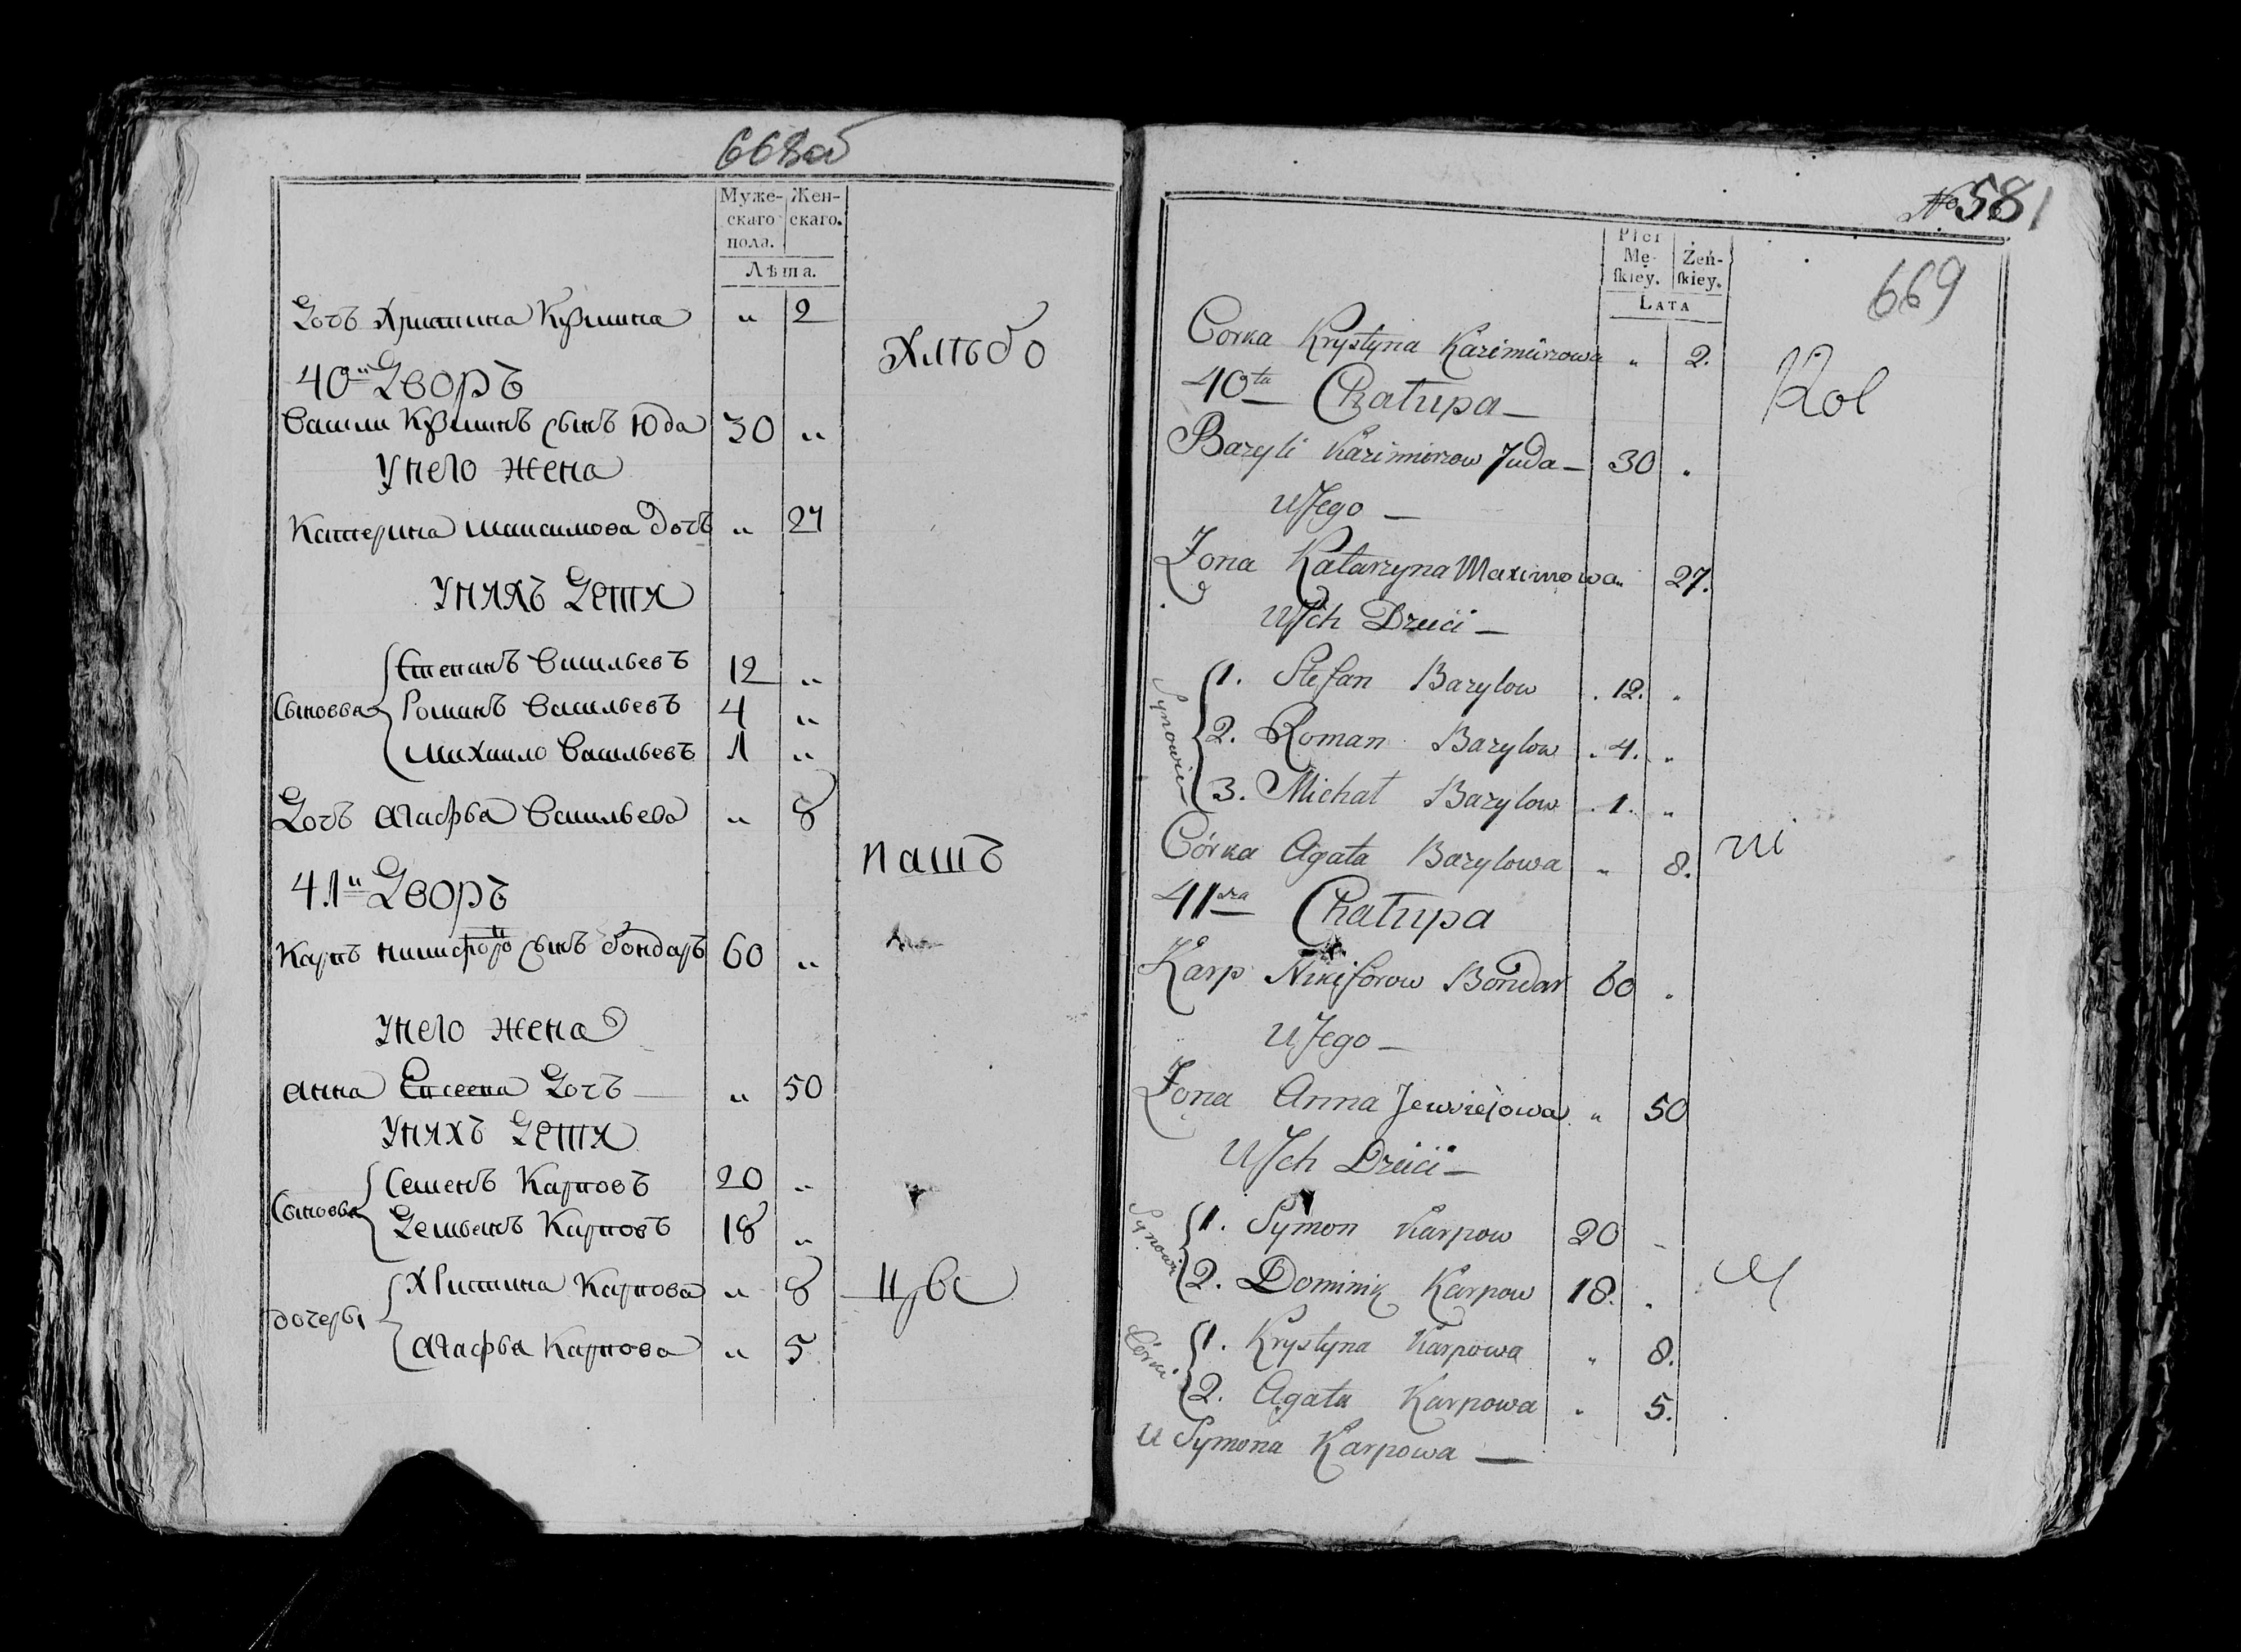 668об
Муже-
скаго
пола.
Жен-
скаго.
Лѣта.
Дочь Христина Кузмина „ 2
Хлѣбо
40й Дворъ
Василь Кузминъ сынъ Юда 30 „
Унего жена
Катерина Максимова дочь „ 27
Унихъ Дети
Сыновья
Степанъ Васильевъ 12 „
Романъ Васильевъ 4 „
Михаило Васильевъ 1 „
Дочь Агафья Васильева „ 8
пашъ
41й Дворъ
Карпъ Никифоро сынъ бондарь 60 „
Унего жена
Анна Дочь „ 50
Унихъ Дети
Сыновья
Семенъ Карповъ 20 „
Демьянъ Карповъ 18 „
дочери
Христина Карпова „ 8
Агафья Карпова „ 5
No 581
669
Płci
Mę-
skiey.
Żeń-
skiey.
LATA
Corka Krystyna Kazimirzowa „ 2.
Rol
40ta Chałupa
Bazyli Kazimirzow Juda 30 „
U Jego
Żona Katarzyna Maximowa „ 27.
U Ich Dzieci
Synowie
1. Stefan Bazylow 12. „
2. Roman Bazylow 4. „
3. Michał Bazylow 1. „
Córka Agata Bazylowa „ 8.
ni
41sza Chałupa
Karp Nikiforow Bondar 60 „
U Jego
Żona Anna Jewsiejowa „ 50
U Ich Dzieci
Synowie
1. Symon Karpow 20 „
2. Dominik Karpow 18. „
Córki
1. Krystyna Karpowa „ 8.
2. Agata Karpowa „ 5.
U Symona Karpowa